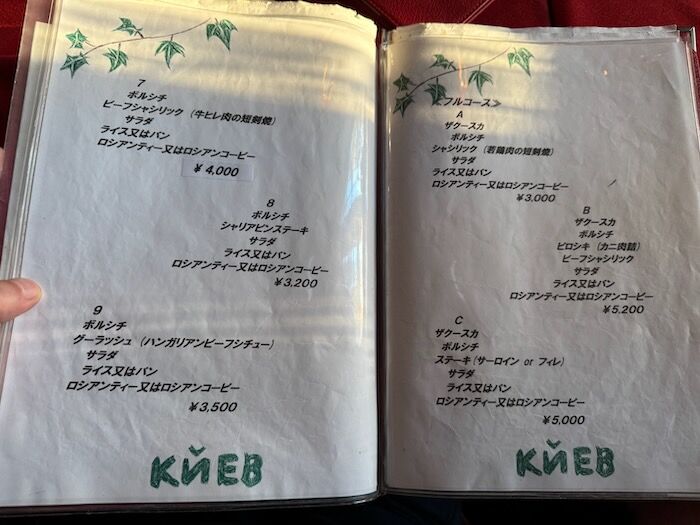 7
ボルシチ
ビーフシャシリック (牛ヒレ肉の短剣焼)
サラダ
ライス又はパン
ロシアンティー又はロシアンコーヒー
¥4,000
8
ボルシチ
シャリアピンステーキ
サラダ
ライス又はパン
ロシアンティー又はロシアンコーヒー
¥3,200
9
ボルシチ
グーラッシュ (ハンガリアンビーフシチュー)
サラダ
ライス又はパン
ロシアンティー又はロシアンコーヒー
¥3,500
КЙЕВ
≪フルコース≫
A
ザクースカ
ボルシチ
シャシリック (若鶏肉の短剣焼)
サラダ
ライス又はパン
ロシアンティー又はロシアンコーヒー
¥3,000
B
ザクースカ
ボルシチ
ピロシキ (カニ肉詰)
ビーフシャシリック
サラダ
ライス又はパン
ロシアンティー又はロシアンコーヒー
¥5,200
C
ザクースカ
ボルシチ
ステーキ (サーロイン or フィレ)
サラダ
ライス又はパン
ロシアンティー又はロシアンコーヒー
¥5,000
КЙЕВ